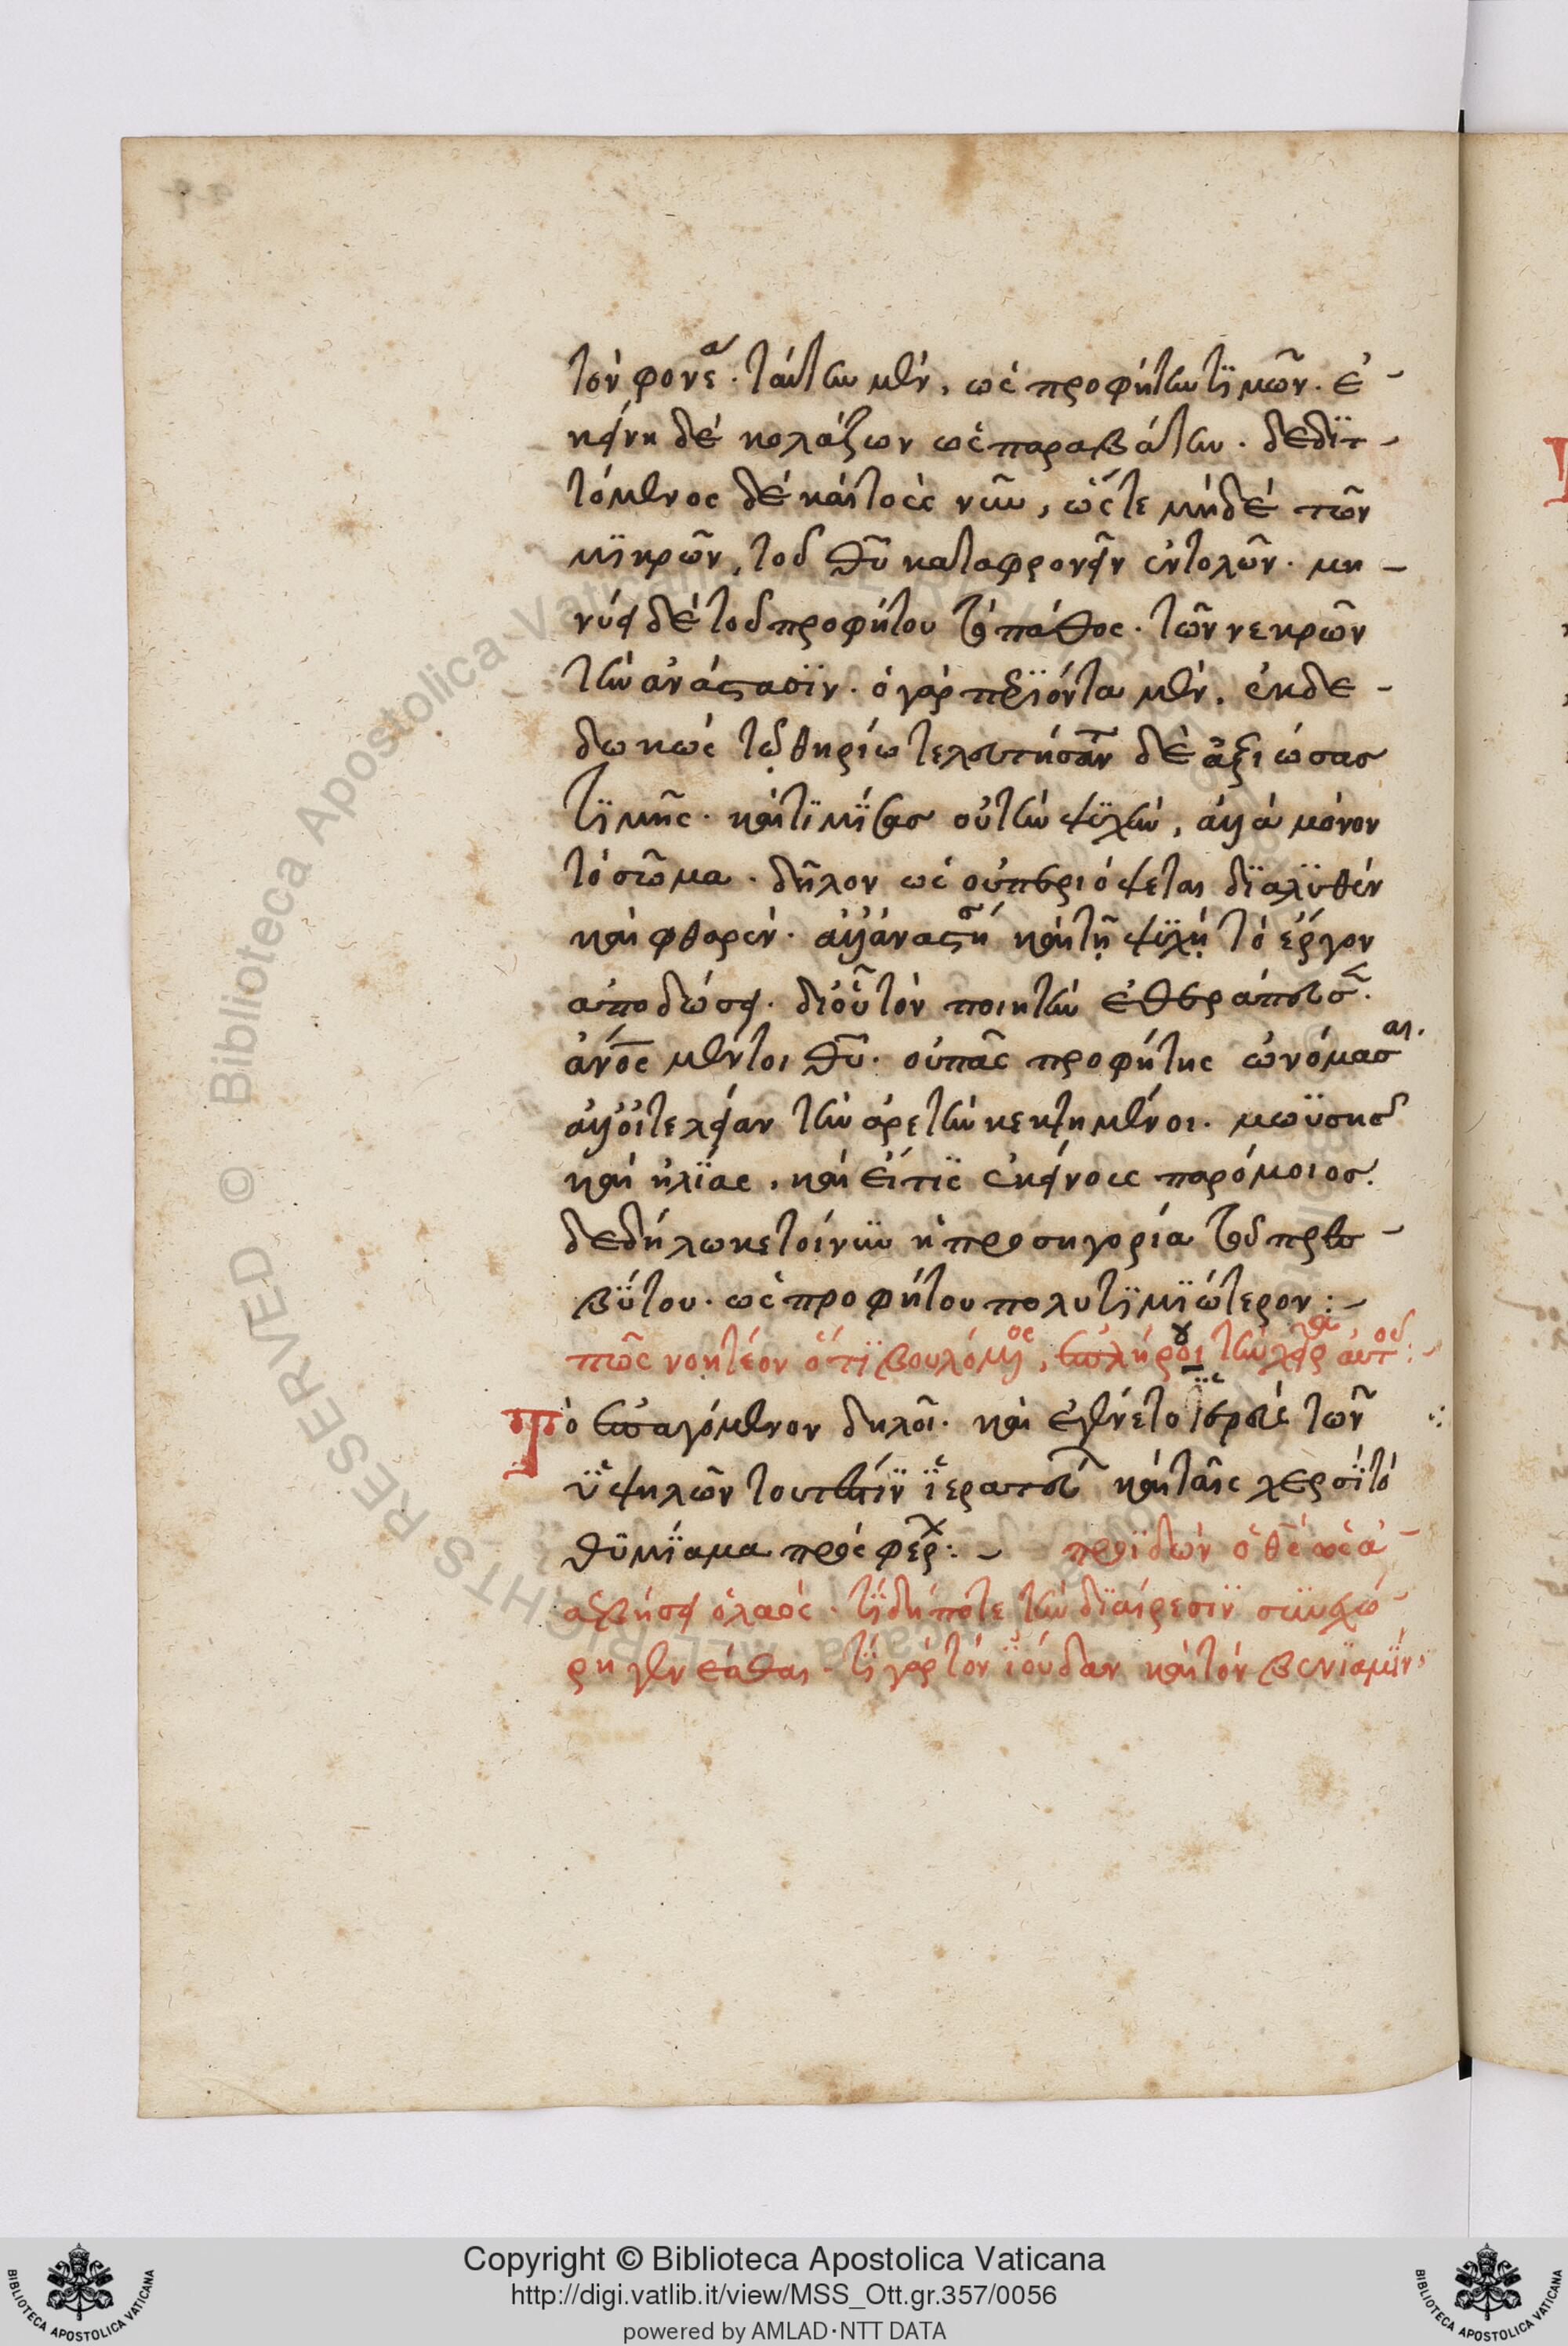 τὸν φονέα. ταύτην μὲν, ὡς προφήτην τιμῶν. ἐ-
κείνη δὲ κολάζων ὡς παραβάτην. δεδιτ-
τόμενος δὲ καὶ τοὺς νῦν, ὥστε μηδὲ τῶν
μικρῶν, τοῦ θυ καταφρονεῖν ἐντολῶν. μη-
νύει δὲ τοῦ προφήτου τὸ πάθος. τῶν νεκρῶν
τὴν ἀνάστασιν. ὁ γὰρ περιϊόντα μὲν, ἐκδε-
δωκὼς τῷ θηρίω τελευτήσαντα δὲ ἀξιώσας
τιμῆς. καὶ τιμήσας οὐ τὴν ψυχὴν, ἀλλὰ μόνον
τὸ σῶμα. δῆλον ὡς οὐ περιόψεται διαλυθὲν
καὶ φθαρέν. ἀλλ' ἀναστήσει καὶ τῇ ψυχῇ τὸ ἔργον
ἀποδώσει. δι' οὗ τὸν ποιητὴν ἐθεράπευσε.
ἀνος μέντοι θυ. οὐ πᾶς προφήτης ὠνόμασται.
ἀλλ' οἱ τελείαν τὴν ἀρετὴν κεκτημένοι. μωϋσῆς
καὶ ἠλίας. καὶ εἴ τις ἐκείνοις παρόμοιος.
δεδήλωκε τοίνυν ἡ προσηγορία τοῦ πρεσ-
βύτου. ὡς προφήτου πολυτιμιώτερον:-
πῶς νοητέον ὅτι βουλόμενος, ἐπλήρου τὴν χεῖρα αὐτοῦ:-
Τὸ ἐπαγόμενον δηλοῖ. καὶ ἐγένετο ἱερεὺς τῶν
ὑψηλῶν τουτέστιν ἱεράτευε καὶ ταῖς χερσὶ τὸ
θυμίαμα προσέφερε:- προϊδὼν ὁ θς ὡς ἀ-
σεβήσει ὁ λαὸς. τί δήποτε τὴν διαίρεσιν συνεχώ-
ρη γενέσθαι. τί γὰρ τὸν ἰούδαν καὶ τὸν βενιαμὶν
Copyright © Biblioteca Apostolica Vaticana
http://digi.vatlib.it/view/MSS_Ott.gr.357/0056
powered by AMLAD·NTT DATA